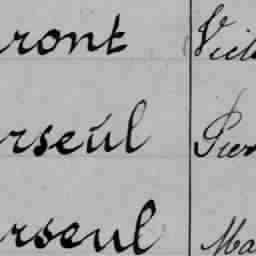 ront Vict
rseul Pier
rseul Ma